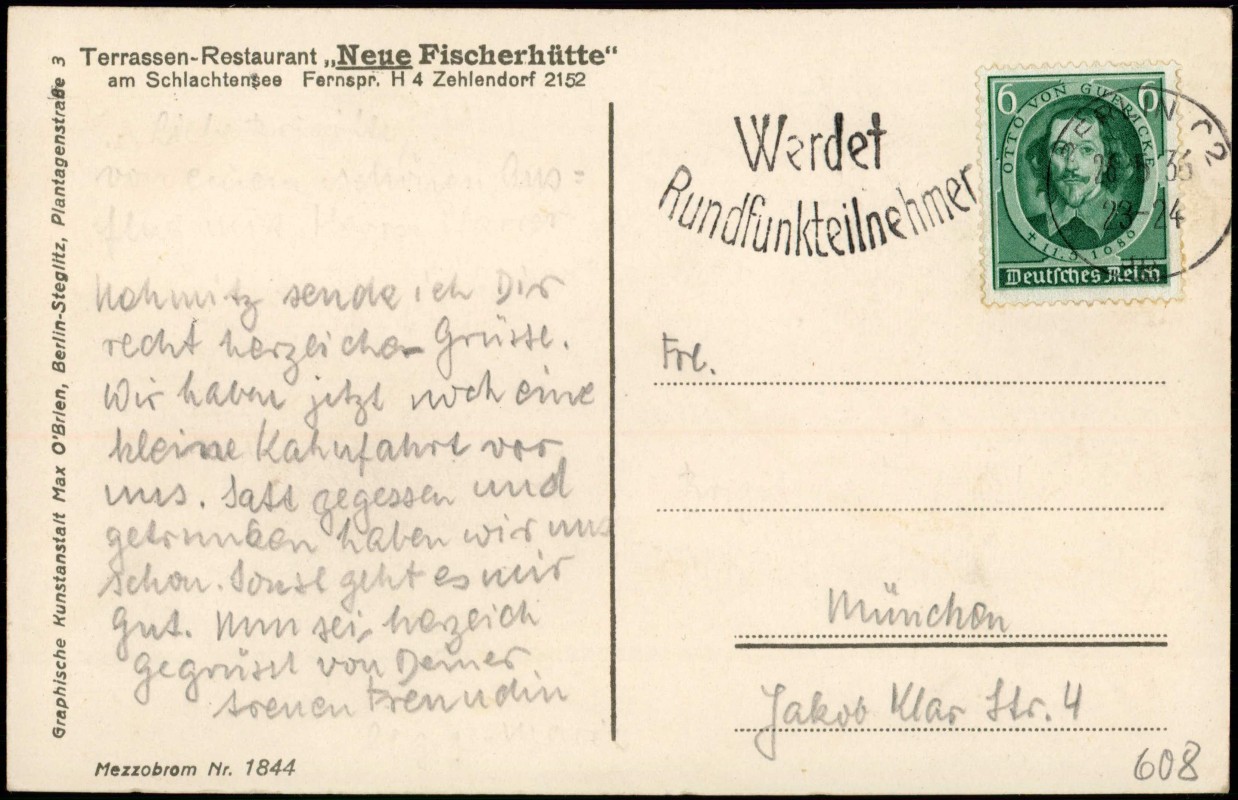 Terrassen-Restaurant „Neue Fischerhütte“
am Schlachtensee Fernspr. H 4 Zehlendorf 2152
Graphische Kunstanstalt Max O'Brien, Berlin-Steglitz, Plantagenstraße 3
von einem schönen Aus=
sende ich Dir
recht herzliche Grüsse.
Wir haben jetzt noch eine
kleine Kahnfahrt vor
uns. Satt gegessen und
getrunken haben wir uns
schon. Sonst geht es mir
gut. Nun sei herzlich
gegrüsst von Deiner
treuen Freundin
Mezzobrom Nr. 1844
Werdet
Rundfunkteilnehmer
6 6
OTTO VON GUERICKE
† 11.5.1686
Deutsches Reich
BERLIN C2
36
23-24
Frl.
München
Jakob Klar Str. 4
608